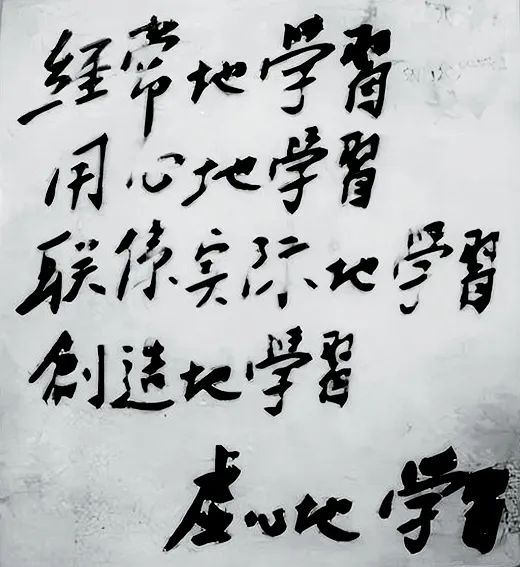 經常地学習
用心地学習
联係实际地学習
創造地學習
虚心地学習